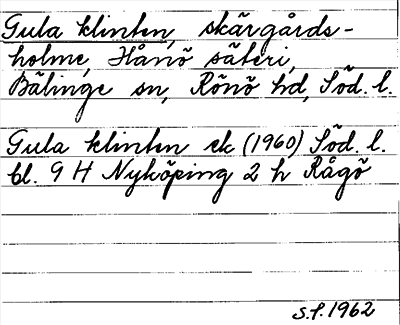 Gula klinten, skärgårds-
holme, Hånö säteri,
Bälinge sn, Rönö hd, Söd. l.
Gula klinten ek (1960) Söd. l.
bl. 9 H Nyköping 2 h Rågö
S.P. 1962